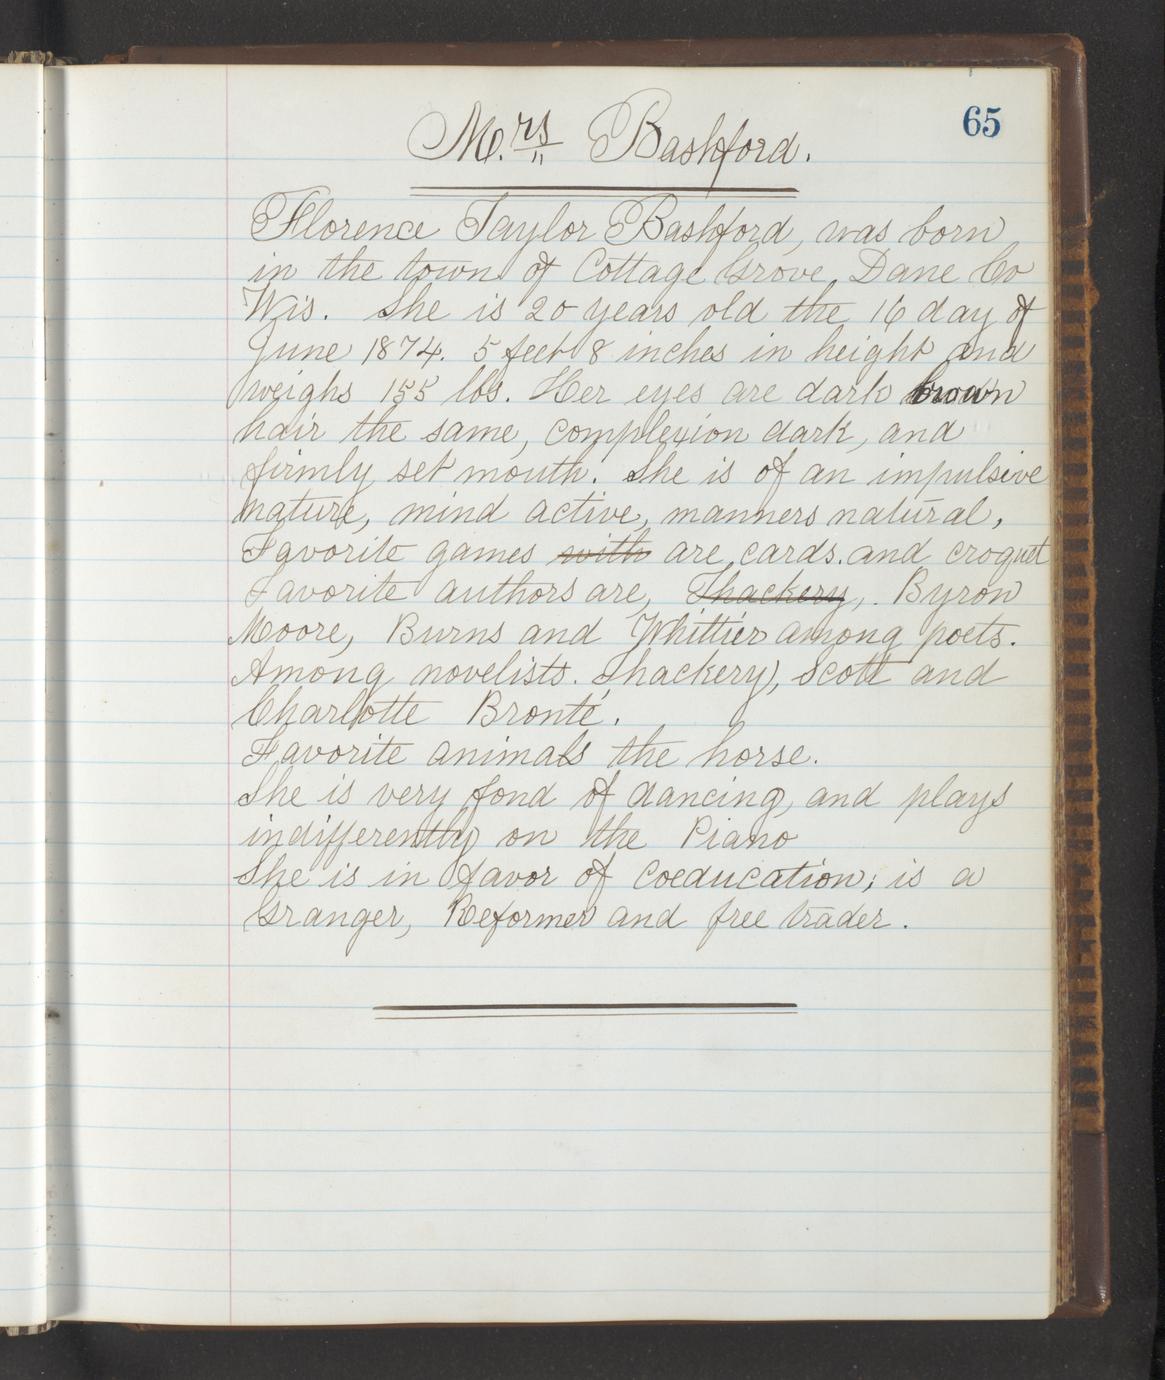 65
Mrs Bashford.
Florence Taylor Bashford, was born
in the town of Cottage Grove, Dane Co
Wis. She is 20 years old the 16 day of
June 1874. 5 feet 8 inches in height and
weighs 155 lbs. Her eyes are dark brown
hair the same, complexion dark, and
firmly set mouth. She is of an impulsive
nature, mind active, manners natural.
Favorite games with are cards. and croquet
Favorite authors are, Thackery, . Byron
Moore, Burns and Whittier among poets.
Among novelists. Thackery, Scott and
Charlotte Bronté.
Favorite animals the horse.
She is very fond of dancing, and plays
indifferently on the Piano
She is in favor of Coeducation; is a
Granger, Reformer and free trader.